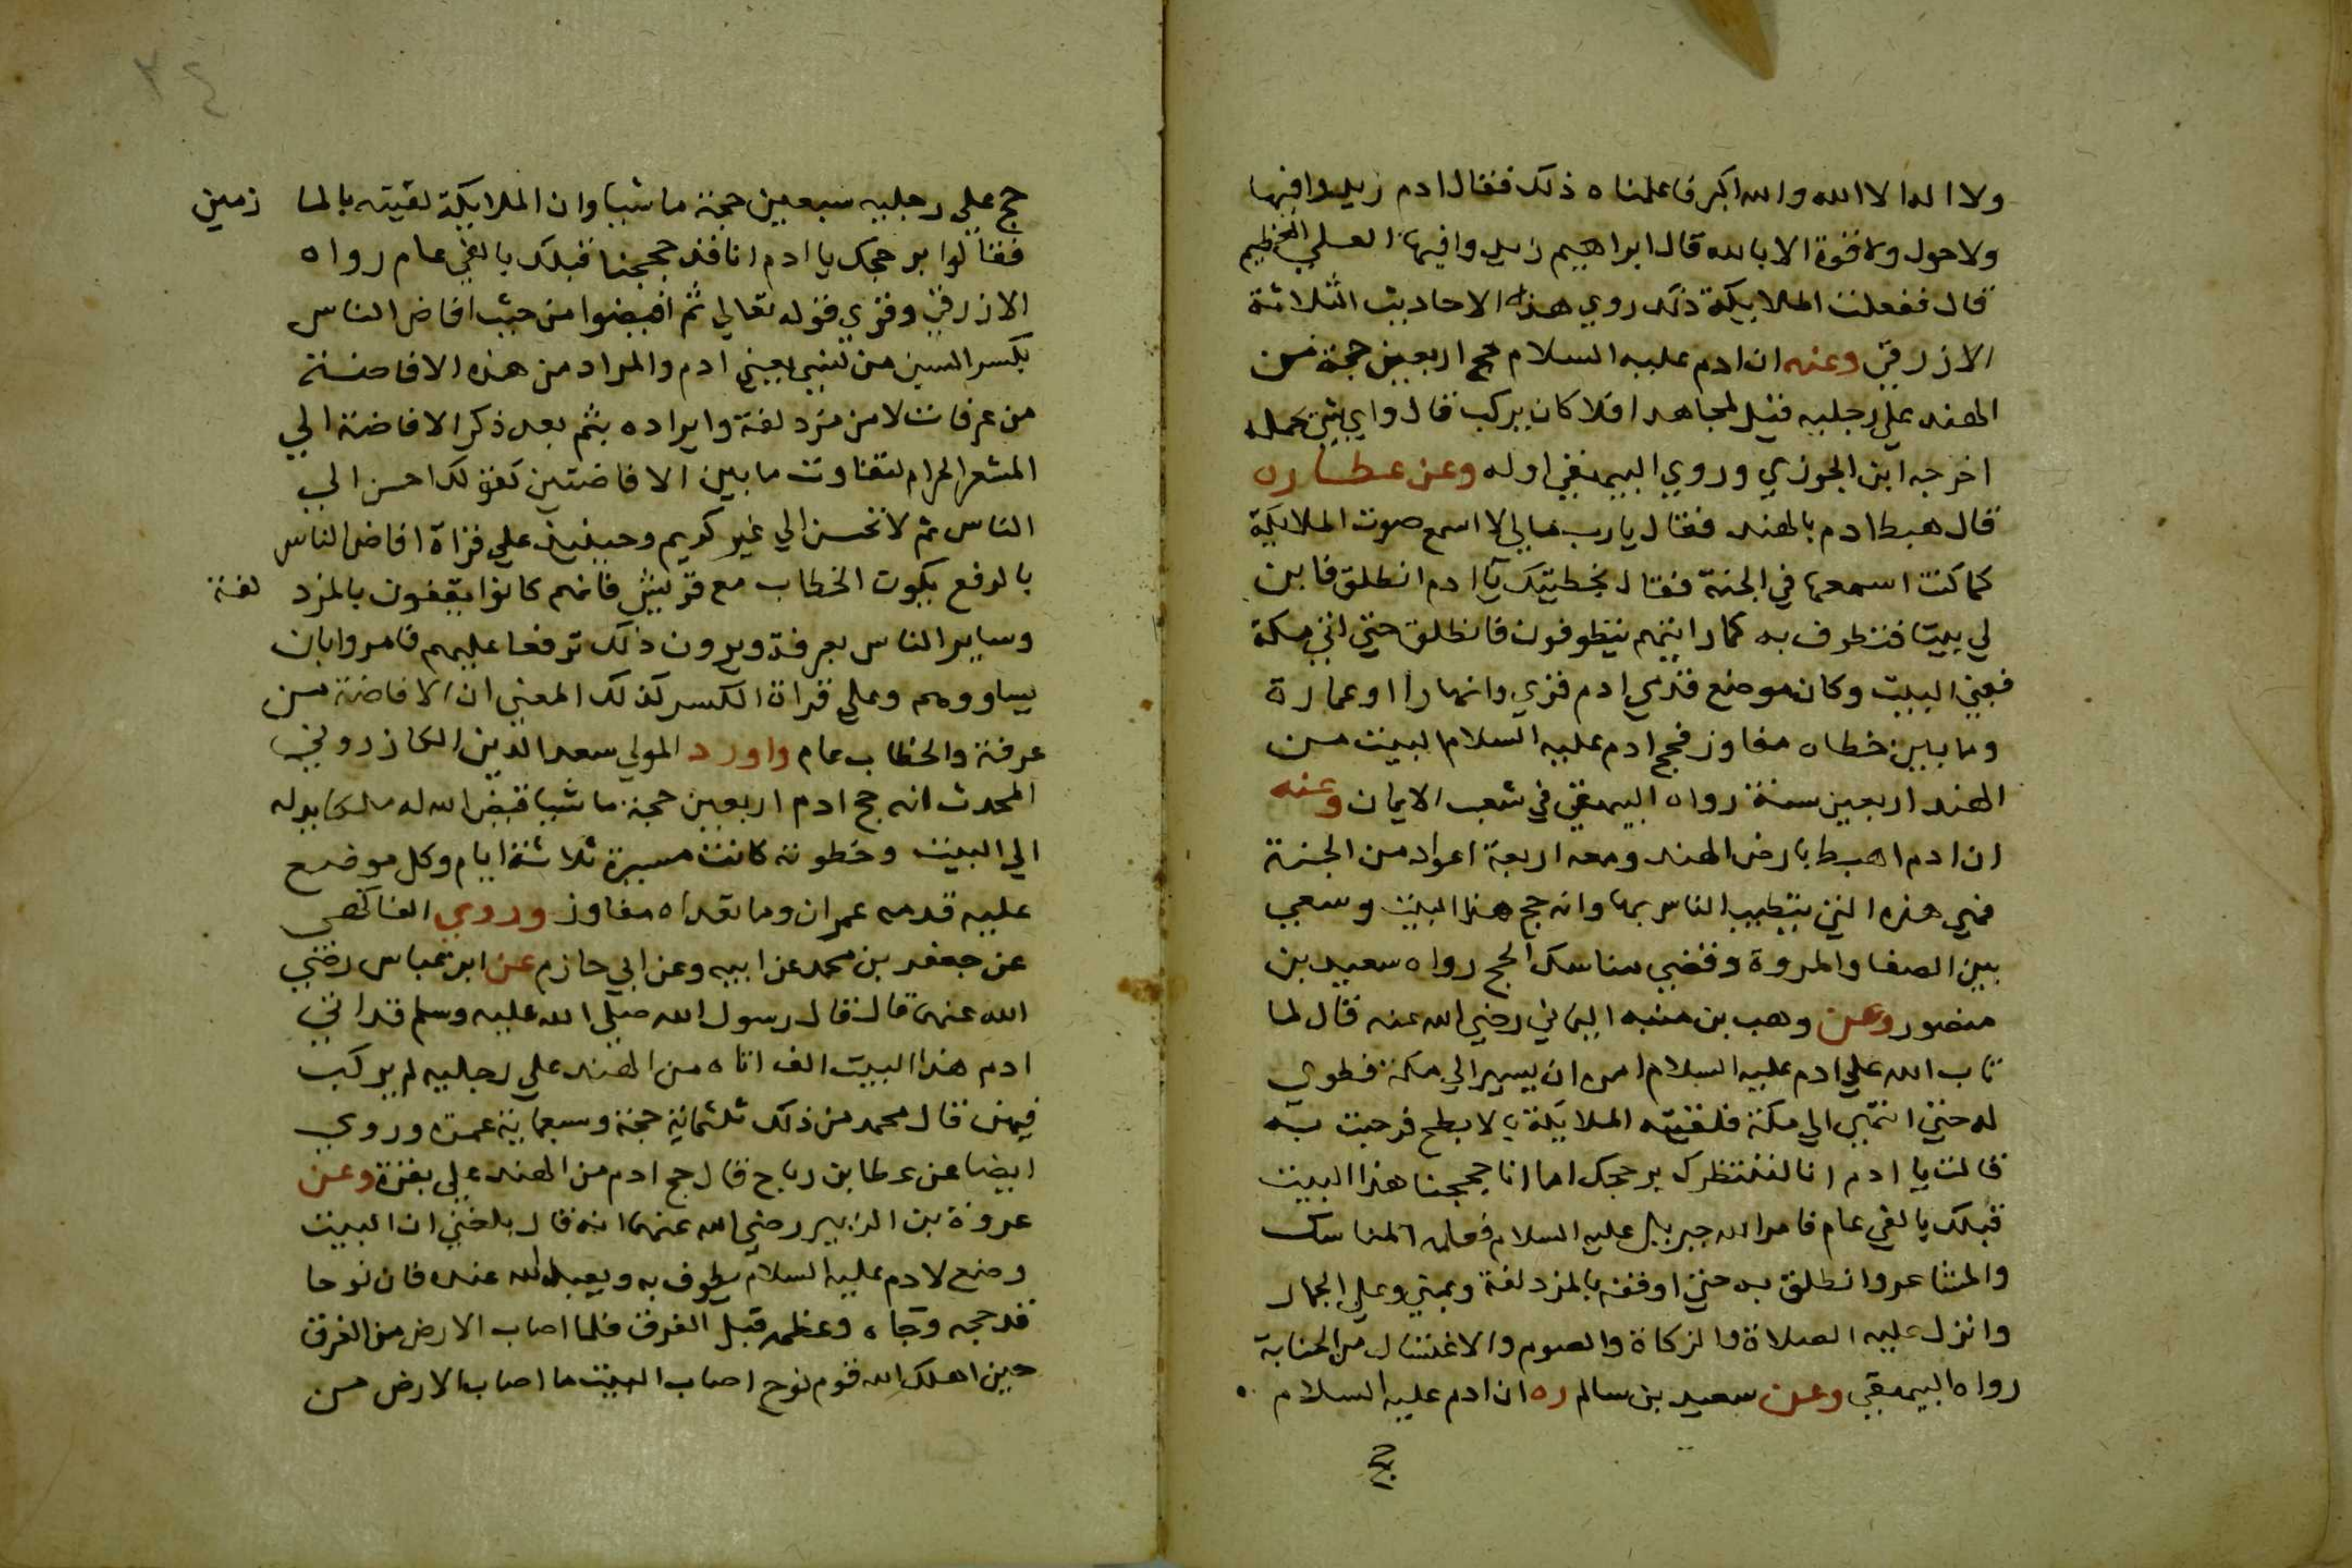 ولا اله الا الله والله اكبر فاعلمناه ذلك فقال ادم زيدوا فيها
ولا حول ولا قوة الا بالله قال ابراهيم زيدوا فيها العلي العظيم
قال ففعلت الملايكة ذلك روي هذه الاحاديث الثلاثة
الازرقي وعنه ان ادم عليه السلام حج اربعين حجة من
الهند علي رجليه قيل لمجاهد افلا كان يركب قال واي شي يحمله
اخرجه ابن الجوزي وروي البيهقي اوله وعن عطا ره
قال هبط ادم بالهند فقال يارب مالي لا اسمع صوت الملايكة
كما كنت اسمعها في الجنة فقال بخطيتك يا ادم انطلق فابن
لي بيتا فتطوف به كما رايتهم يتطوفون فانطلق حتي اتي مكة
فبني البيت وكان موضع قدمي ادم قري وانهارا وعمارة
وما بين خطاه مفاوز فحج ادم عليه السلام البيت من
الهند اربعين سنة رواه البيهقي في شعب الايمان وعنه
ان ادم اهبط بارض الهند ومعه اربعة اعواد من الجنة
فهي هذه التي يتطيب الناس بها وانه حج هذا البيت وسعي
بين الصفا والمروة وقضي مناسك الحج رواه سعيد بن
منصور وعن وهب بن منبه اليماني رضي الله عنه قال لما
تاب الله علي ادم عليه السلام امره ان يسير الي مكة فطوي
له حتي انتهي الي مكة فلقيته الملايكة بالابطح فرحبت به
قالت يا ادم انا لننتظرك بر حجك اما انا حججنا هذا البيت
قبلك بالفي عام فامر الله جبريل عليه السلام فعلمه المناسك
والمشاعر وانطلق به حتي اوقفه بالمزدلفة وبمني وعلي الجمار
وانزل عليه الصلاة والزكاة والصوم والاغتسال من الجنابة
رواه البيهقي وعن سعيد بن سالم ره ان ادم عليه السلام
حج
٣٤
حج علي رجليه سبعين حجة ماشيا وان الملايكة لقيته بالما زمين
فقالوا بر حجك يا ادم انا قد حججنا قبلك بالفي عام رواه
الازرقي وقري قوله تعالي ثم افيضوا من حيث افاض الناس
بكسر السين من نسي يعني ادم والمراد من هذه الافاضة
من عرفات لا من مزدلفة وايراده بثم بعد ذكر الافاضة الي
المشعر الحرام لتفاوت ما بين الافاضتين كقولك احسن الي
الناس ثم لا تحسن الي غير كريم وحينيذ علي قراة افاض الناس
بالرفع يكون الخطاب مع قريش فانهم كانوا يقفون بالمزد لفة
وساير الناس بعرفة ويرون ذلك ترفعا عليهم فامروا بان
يساووهم وعلي قراة الكسر كذلك المعني ان الافاضة من
عرفة والخطاب عام واورد المولي سعد الدين الكازروني
المحدث انه حج ادم اربعين حجة ماشيا قيض الله له ملكا يدله
الي البيت وخطوته كانت مسيرة ثلاثة ايام وكل موضع
عليه قدمه عمران وما تعداه مفاوز وروي الفاكهي
عن جعفر بن محمد عن ابيه وعن ابي حازم عن ابن عباس رضي
الله عنهما قال قال رسول الله صلي الله عليه وسلم قد اتي
ادم هذا البيت الف اتاه من الهند علي رجليه لم يركب
فيهن قال محمد من ذلك ثلثماية حجة وسبعماية عمرة وروي
ايضا عن عطا بن رباح قال حج ادم من الهند علي بقرة وعن
عروة بن الزبير رضي الله عنهما انه قال بلغني ان البيت
وضع لادم عليه السلام يطوف به ويعبد الله عنده فان نوحا
قد حجه وجاه وعظمه قبل الغرق فلما اصاب الارض من الغرق
حين اهلك الله قوم نوح اصاب البيت ما اصاب الارض من